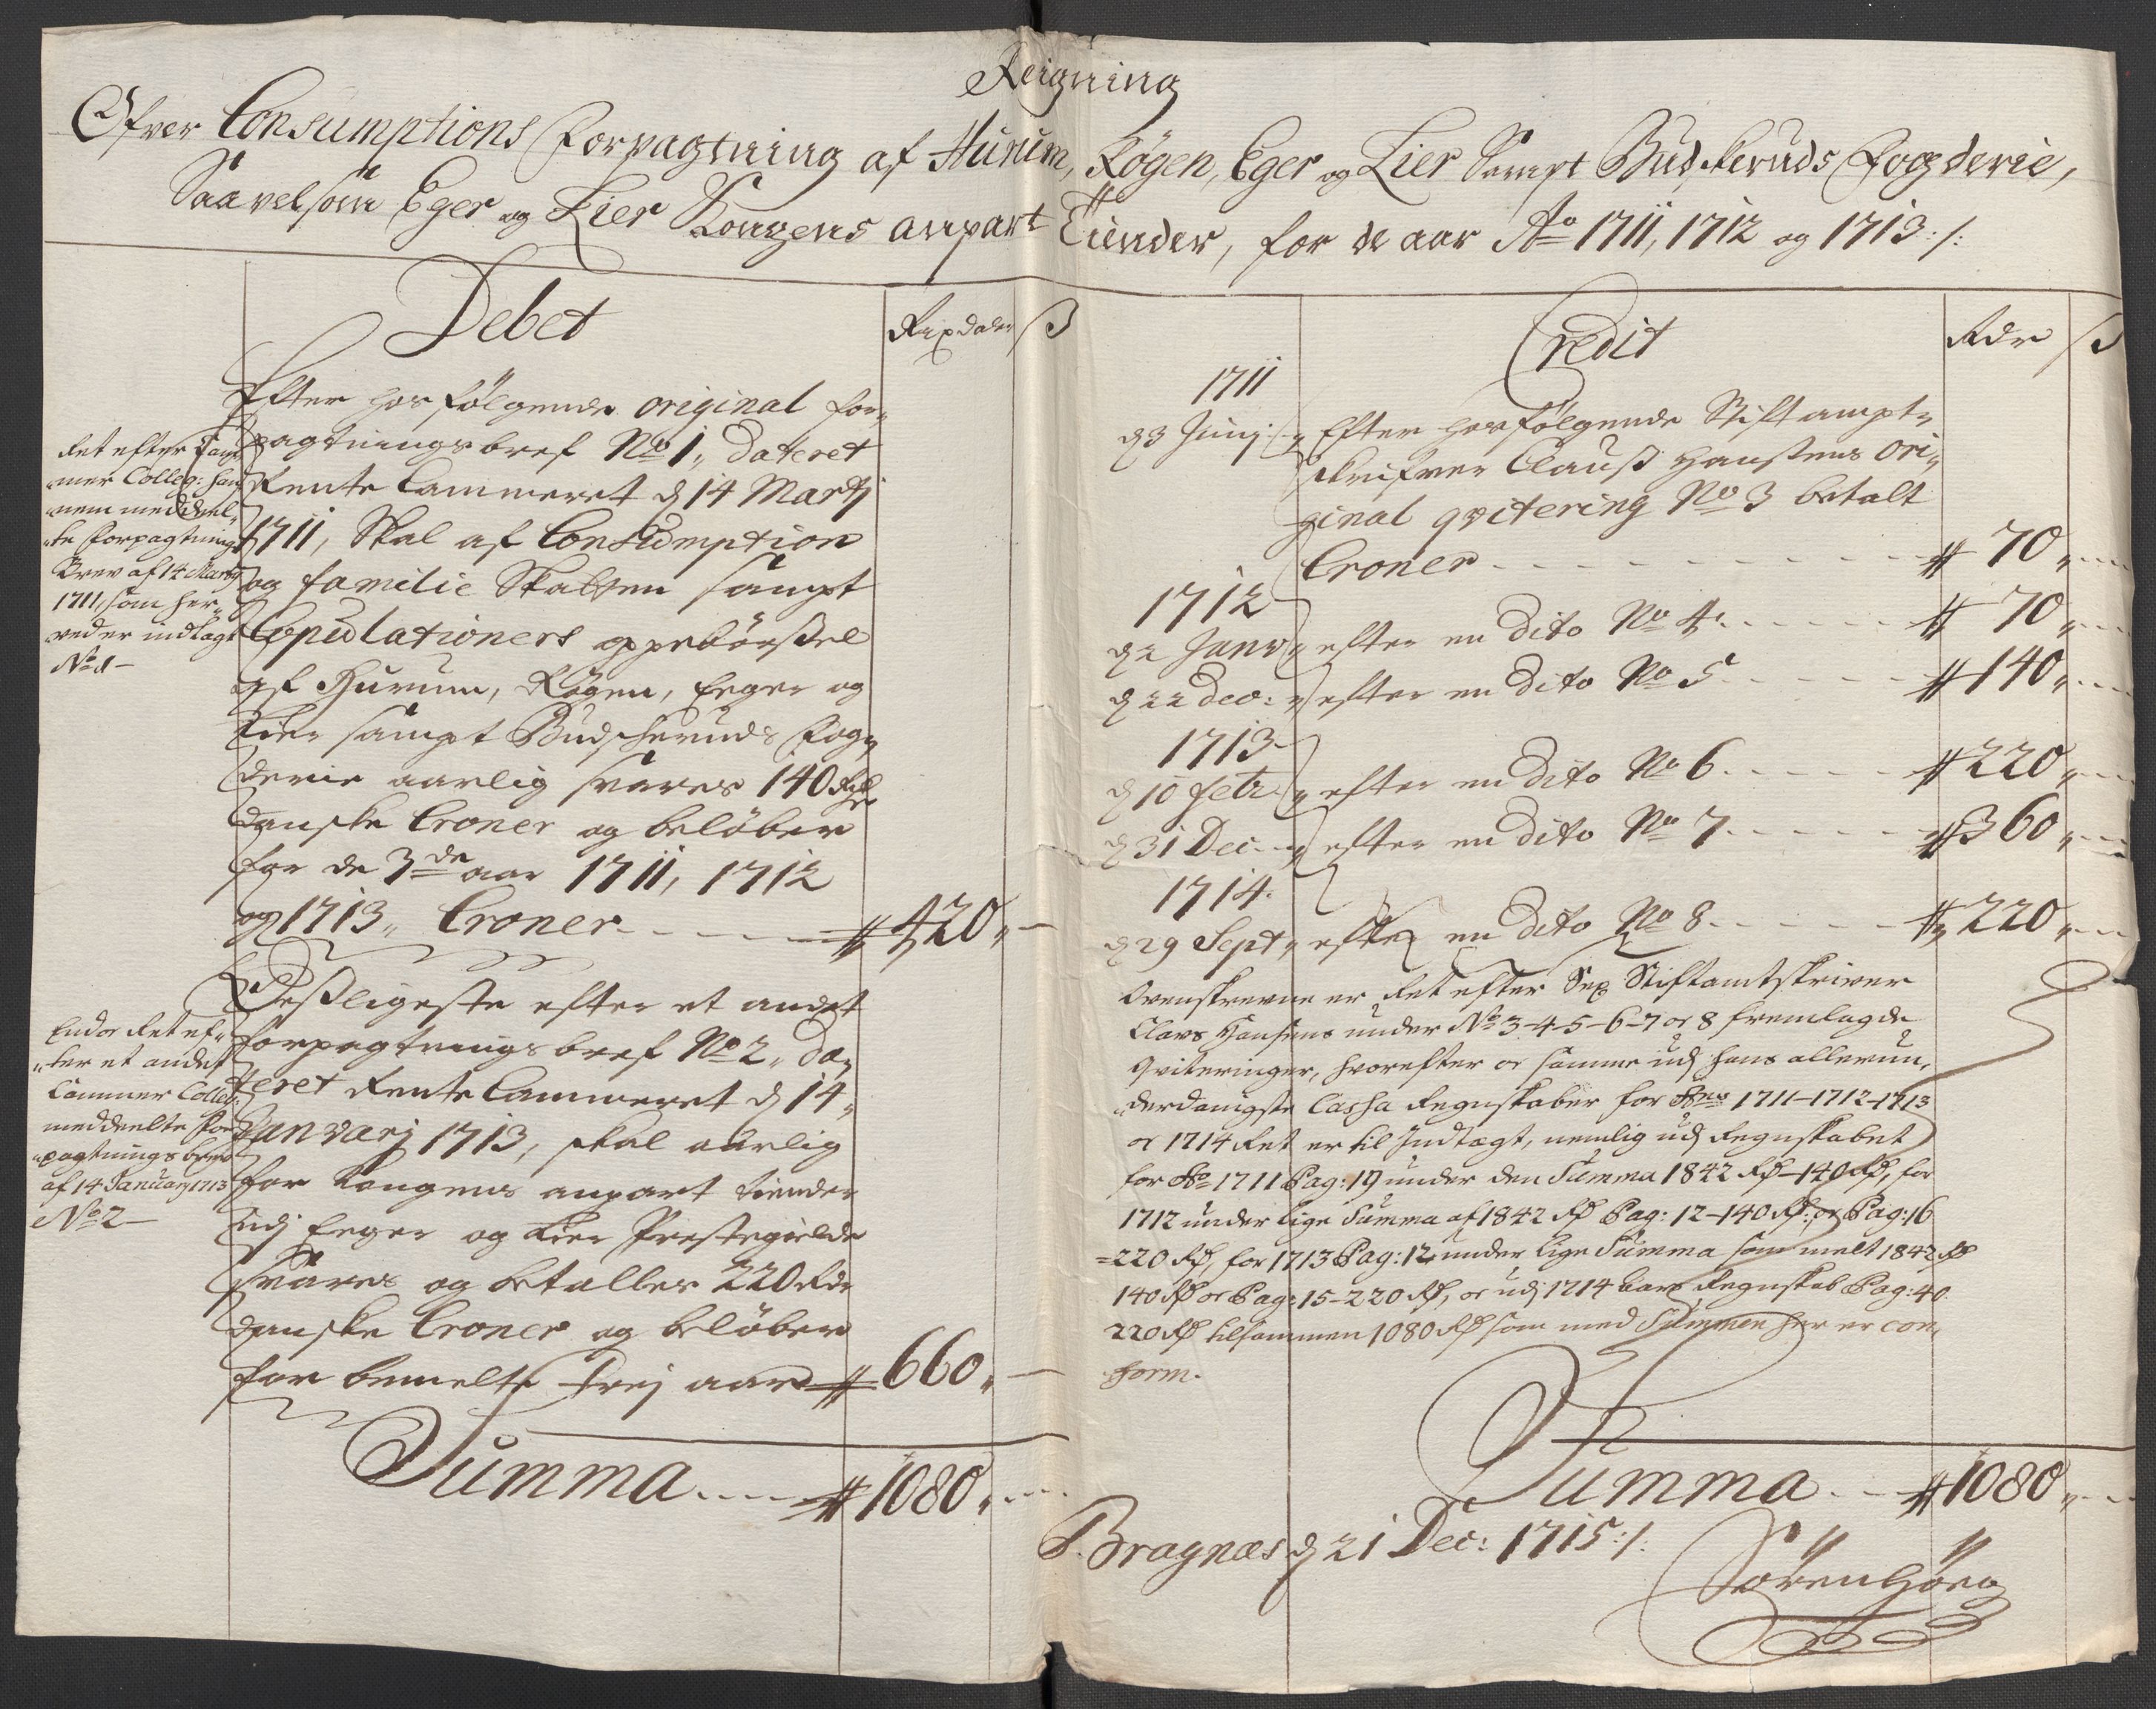 Reigning
Øfver Consumptions Forpagtning af Hurum, Røgen, Eger og Lier Sampt Budskeruds Fogderie,
Saavelsom Eger og Lier Kongens anpart Tiender, for de aar Ao 1711, 1712 og 1713:/:
Debet
Rixdaler ß
Efter hosfølgende original for„
pagtningsbref No 1„ dateret
Rente Cammeret d 14 Martj
1711, Skal af Consumption
og familie Skatten sampt
Copulationers oppebørßel
af Hurum, Røgen, Eeger og
Lier sampt Budscheruds Fog„
derie aarlig svares 140 Rdr
danske Croner og beløber
for de 3de aar 1711, 1712
og 1713„ Croner - - - - # 420„ -
Ret efter Cam„
mer Colleg: han„
nem meddeel„
„te Forpagtnings
Brev af 14 Martj
1711, som her„
ved er indlagt
No 1 -
Deßligeste efter et andet
forpagtningsbref No 2„ da„
teret Rente Cammeret d 14„
Janvarj 1713, skal aarlig
for Kongens anpart tiender
udj Eeger og Lier Prestegielde
svares og betalles 220 Rdr
danske Croner og beløber
for bemelte trej aar # 660„ -
Endo Ret ef„
„ter et andet
Cammer Colleg:
meddeelte For„
„pagtnings brev
af 14 Januarj 1713
No 2 -
Summa - - - # 1080„ - - -
Credit
Rdr ß
1711
d 3 Junj - „ Efter hosfølgende Stiftampt„
skrifver Clauß Hanßens ori„
ginal qvitering No 3 betalt
Croner - - - - - - - - # 70„ - - -
1712
d 2 Janv „ efter en dito No 4 - - - - - # 70„ - - -
d 22 Dec: „ efter en dito No 5 - - - - - # 140„ - - -
1713
d 10 Febr „ efter en dito No 6 - - - - - # 220„ - - -
d 31 Dec - „ efter en dito No 7 - - - - - # 360„ - - -
1714
d 29 Sept „ efter en dito No 8 - - - - - # 220„ - - -
Ovenskrevne er Ret efter Sr Stiftamtskriver
Claus Hansens under No 3-4-5-6-7 oc 8 fremlagde
Qviteringer, hvorefter oc samme udj hans allerun„
„derdanigste Cassa Regnskaber for Ao 1711-1712-1713
oc 1714 Ret er til Indtægt, nemlig udj Regnskabet
for Ao 1711 Pag: 19 under den Summa 1842 Rd - 140 Rd, for
1712 under lige Summa af 1842 Rd Pag: 12 - 140 Rd: oc Pag: 16
= 220 Rd, for 1713 Pag: 12 under lige Summa som melt 1842 Rd
140 Rd oc Pag: 15 - 220 Rd, oc udj 1714 Regnskab Pag: 40
220 Rd tilsammen 1080 Rd som med Summen her er con„
form.
Summa - - # 1080„ - - -
Bragnæs d 21 Dec: 1715:/:
Søren